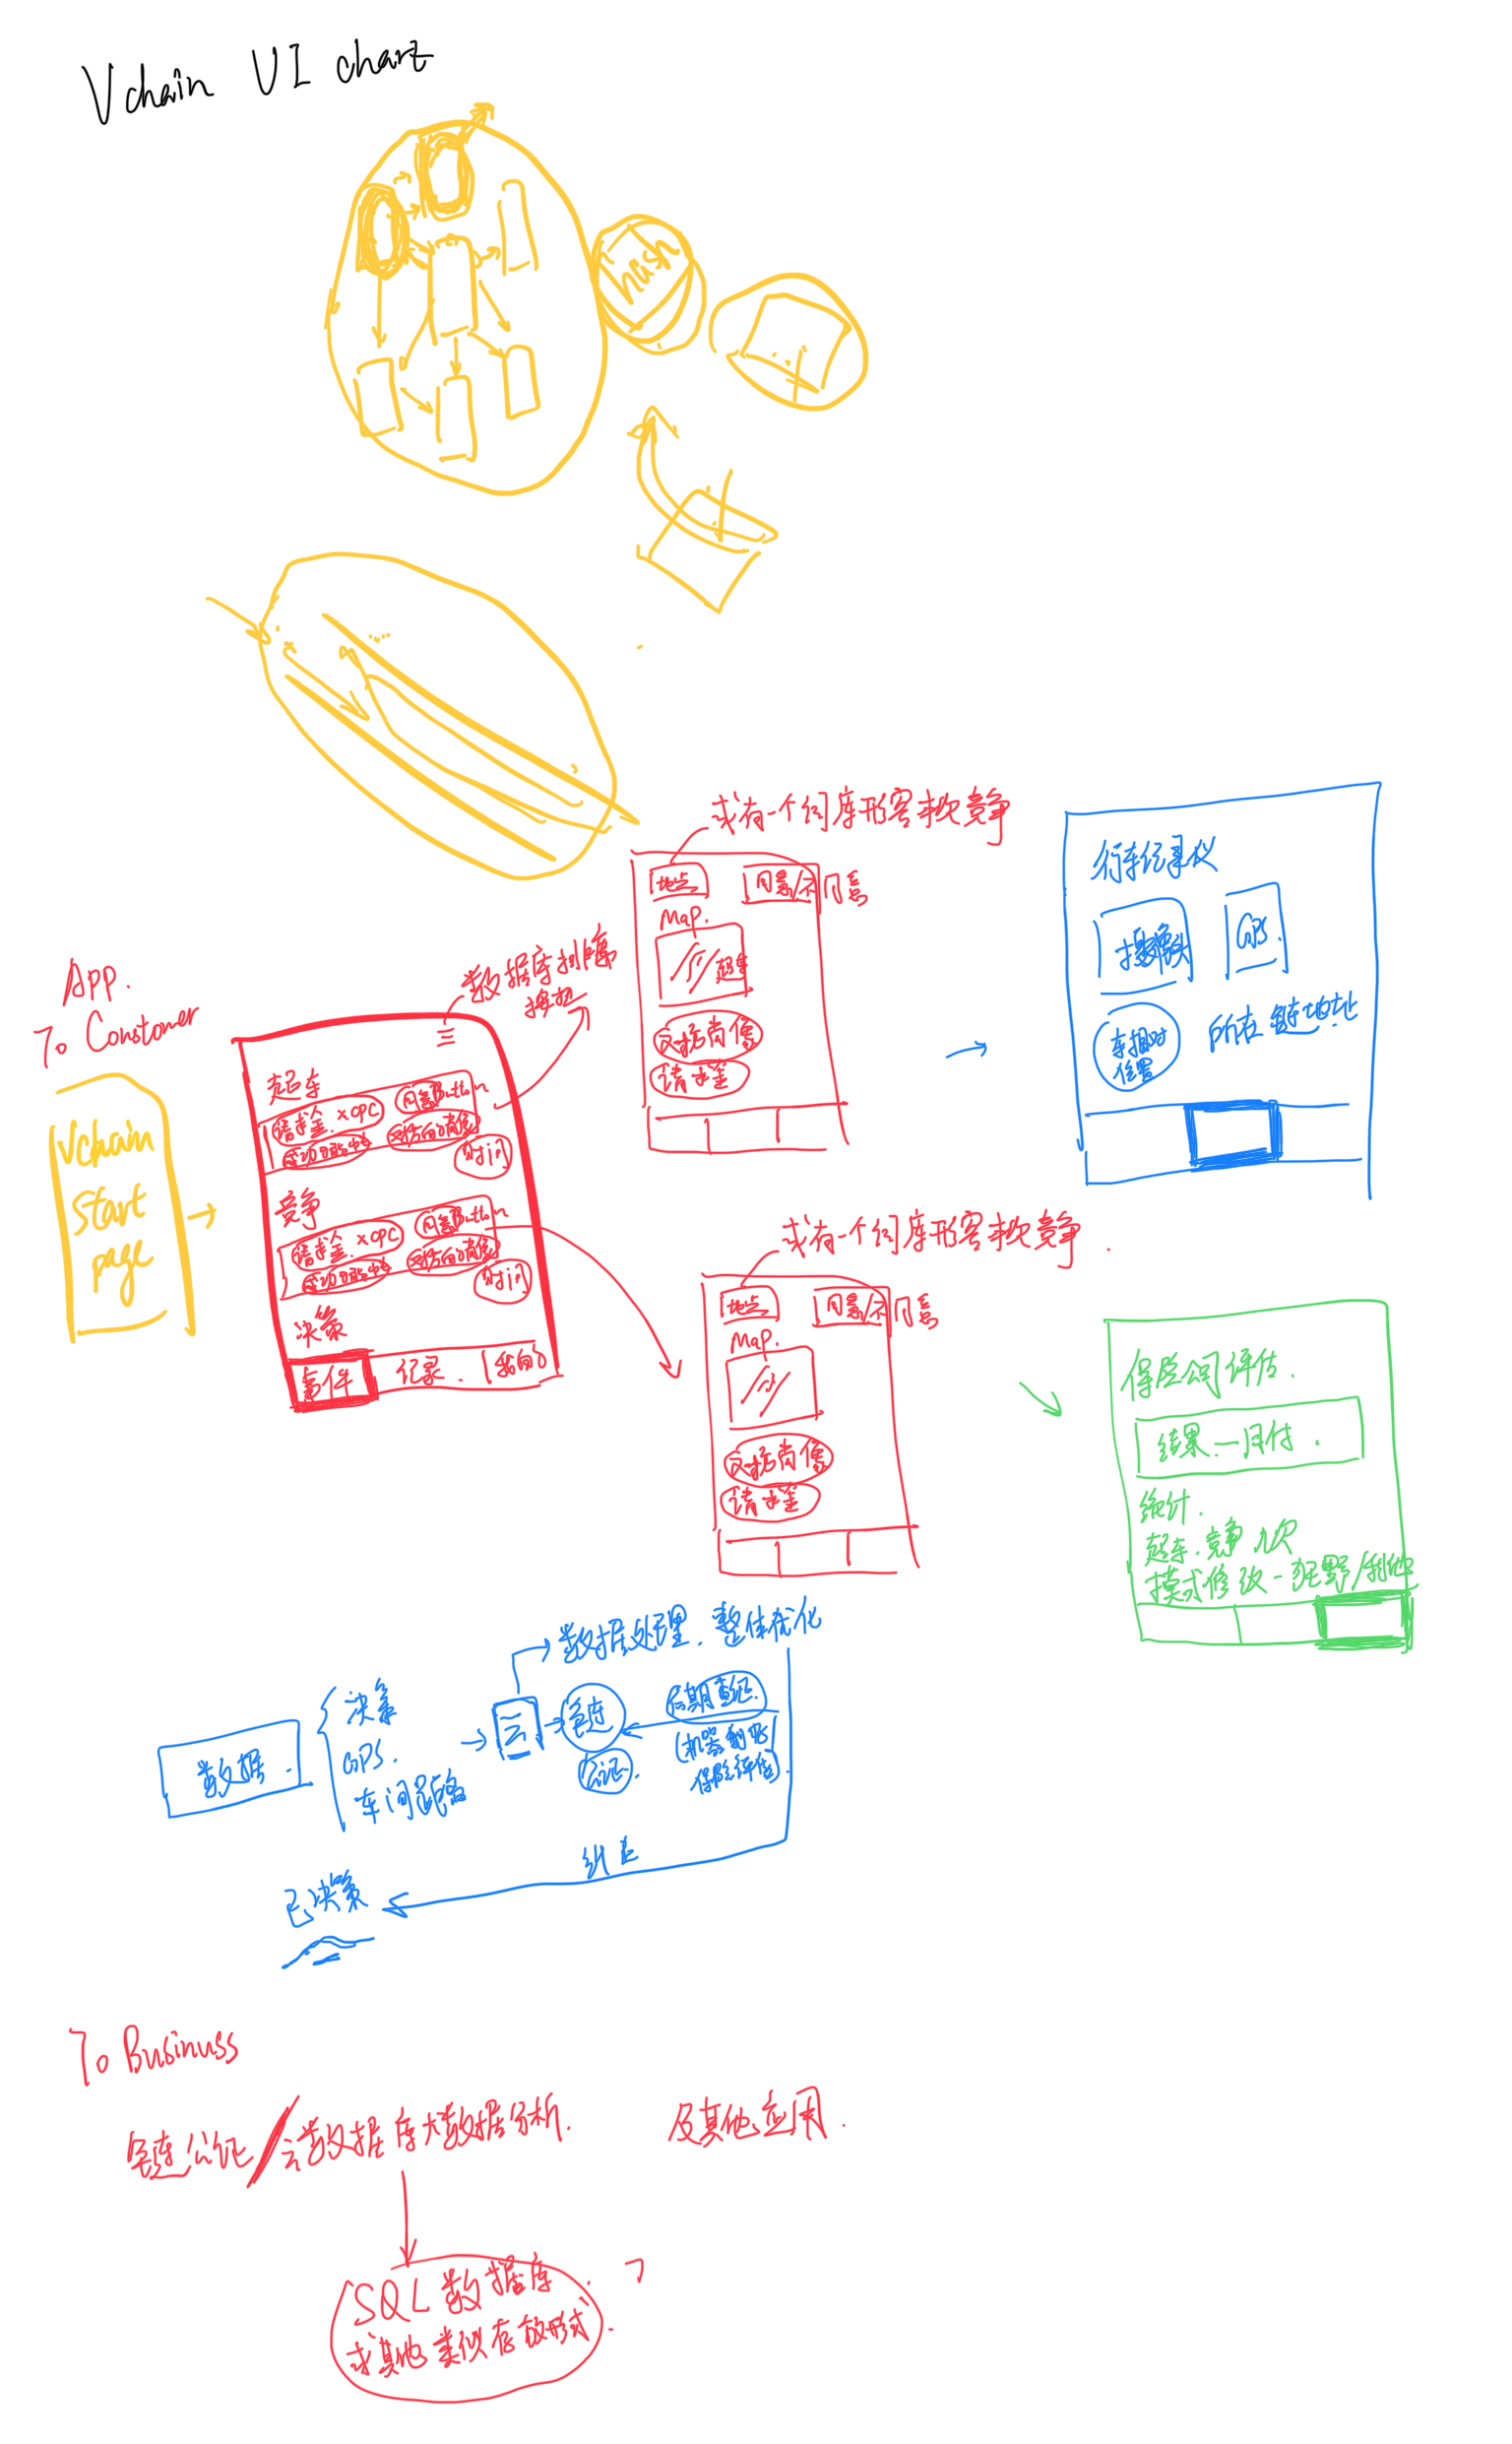 Vchain UI chart
App.
To Constomer
Vchain
start
page
数据库删除
超车
请求金.xOPC
同意Button
成功概率
对方的肖像
时间
竞争
请求金.xOPC
同意Button
成功概率
对方的肖像
时间
决策
事件
记录.
我的
或有一个词库形容本次竞争
地点
同意/不同意
Map.
超车
包括肖像
请求金
或有一个词库形容本次竞争.
地点
同意/不同意
Map.
包括肖像
请求金
行车记录仪
摄像头
GPS.
车相对
位置
所在链地址
保险公司评估.
结果.一月付.
统计.
超车.竞争 几次
模式修改-狂野/利他
数据.
决策
GPS.
车间距离
云
数据处理.整体优化
链
公证.
后期查证.
保险评估
纠正
已决策
To Businuss
链公证/云数据库大数据分析.
及其他应用.
SQL数据库.
或其他类似存放形式.
?